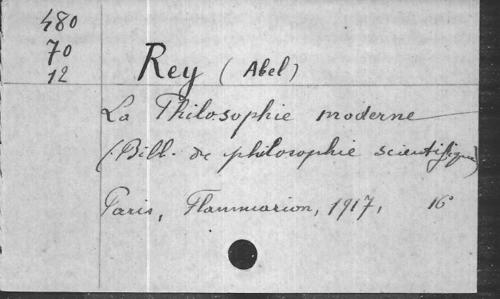 480
70
12
Rey (Abel)
La Philosophie moderne
(Bibl. de philosophie scientifique)
Paris, Flammarion, 1917, 16°